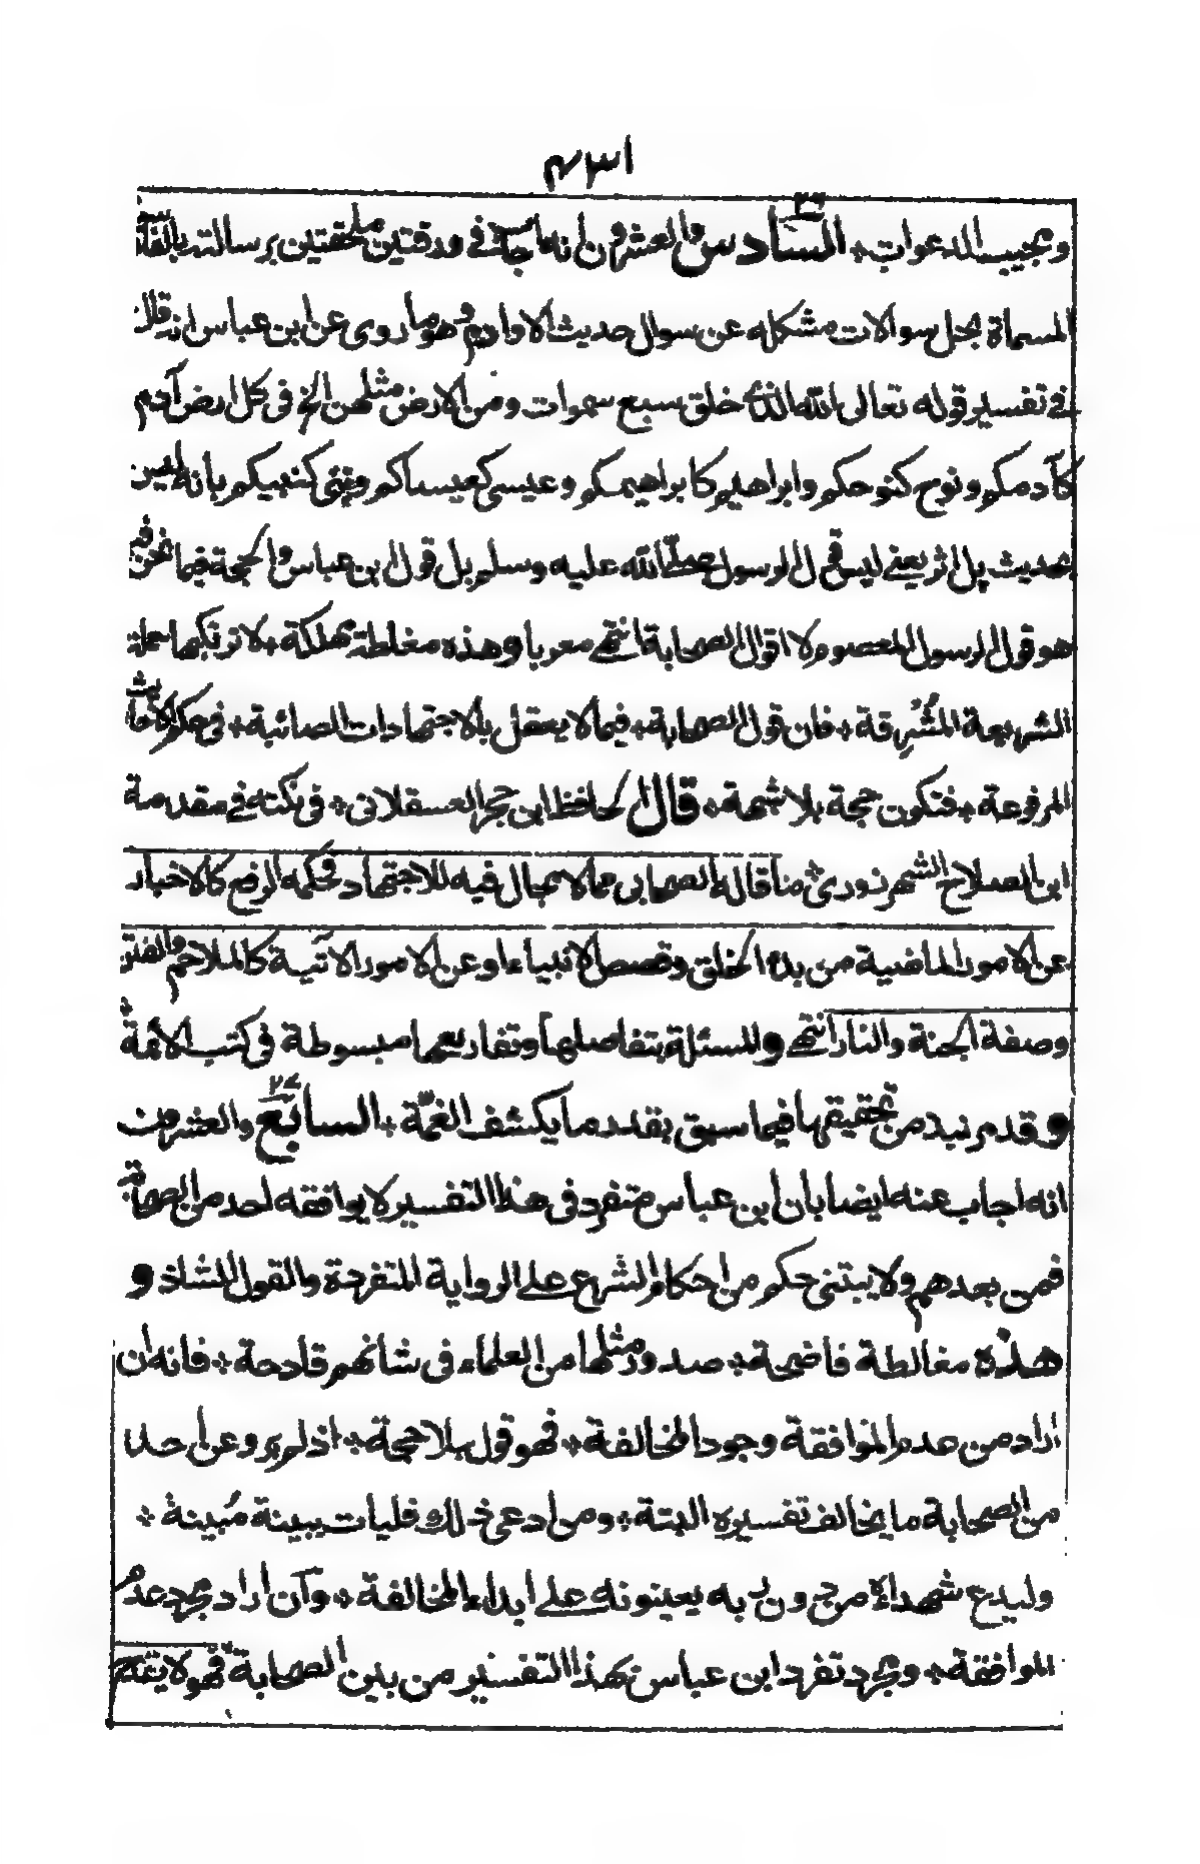 ٤٣١
ومجيب الدعوات ٭ السادس والعشرون انه اجاب في ورقتين ملحقتين برسالته بالفارسية
المسماة بحل سوالات مشكله عن سوال حديث الاوادم وهو ما روى عن ابن عباس انه قال
في تفسير قوله تعالى الله الذي خلق سبع سموات ومن الارض مثلهن الخ فى كل ارض آدم
كآدمكم ونوح كنوحكم وابراهيم كابراهيمكم وعيسى كعيساكم ونبى كنبيكم بانه ليس
بحديث بل اثر يعني ليس قول الرسول صلى الله عليه وسلم بل قول ابن عباس والحجة فيما نحن فيه
هو قول الرسول المعصوم لا اقوال الصحابة انتهى معربا وهذه مغلطة مهلكة ٭ لا ترتكبها حملة
الشريعة المشرقة ٭ فان قول الصحابة ٭ فيما لا يعقل بالاجتهادات الصائبة ٭ فى حكم الاحاديث
المرفوعة ٭ فتكون حجة بلا شبهة ٭ قال الحافظ ابن حجر العسقلانى ٭ فى نكته في مقدمة
ابن الصلاح الشهرزورى ٭ ما قاله الصحابى مما لا مجال فيه للاجتهاد فحكمه الرفع كالاخبار
عن الامور الماضية من بدء الخلق وقصص الانبياء او عن الامور الآتية كالملاحم والفتن
وصفة الجنة والنار انتهى والمسئلة بتفاصيلها وتفاريعها مبسوطة فى كتب الائمة ٭
وقد مر نبذ من تحقيقها فيما سبق بقدر ما يكشف الغمة ٭ السابع ٢٧ والعشرون
انه اجاب عنه ايضا بان ابن عباس متفرد فى هذا التفسير لا يوافقه احد من الصحابة
فمن بعدهم ولا يبتنى حكم من احكام الشرع على الرواية المتفردة والقول الشاذ و
هذه مغالطة فاضحة ٭ صدور مثلها من العلماء فى شانهم قادحة ٭ فانه ان
اراد من عدم الموافقة وجود المخالفة ٭ فهو قول بلا حجة ٭ اذ لم يرو عن احد
من الصحابة ما يخالف تفسيره البتة ٭ ومن ادعى ذلك فليات ببينة مبينة ٭
وليدع شهداءه من دون ربه يعينونه على ابداء المخالفة ٭ وان اراد مجرد عدم
الموافقة ٭ ومجرد تفرد ابن عباس بهذا التفسير من بين الصحابة ٭ فهو لا يقدح